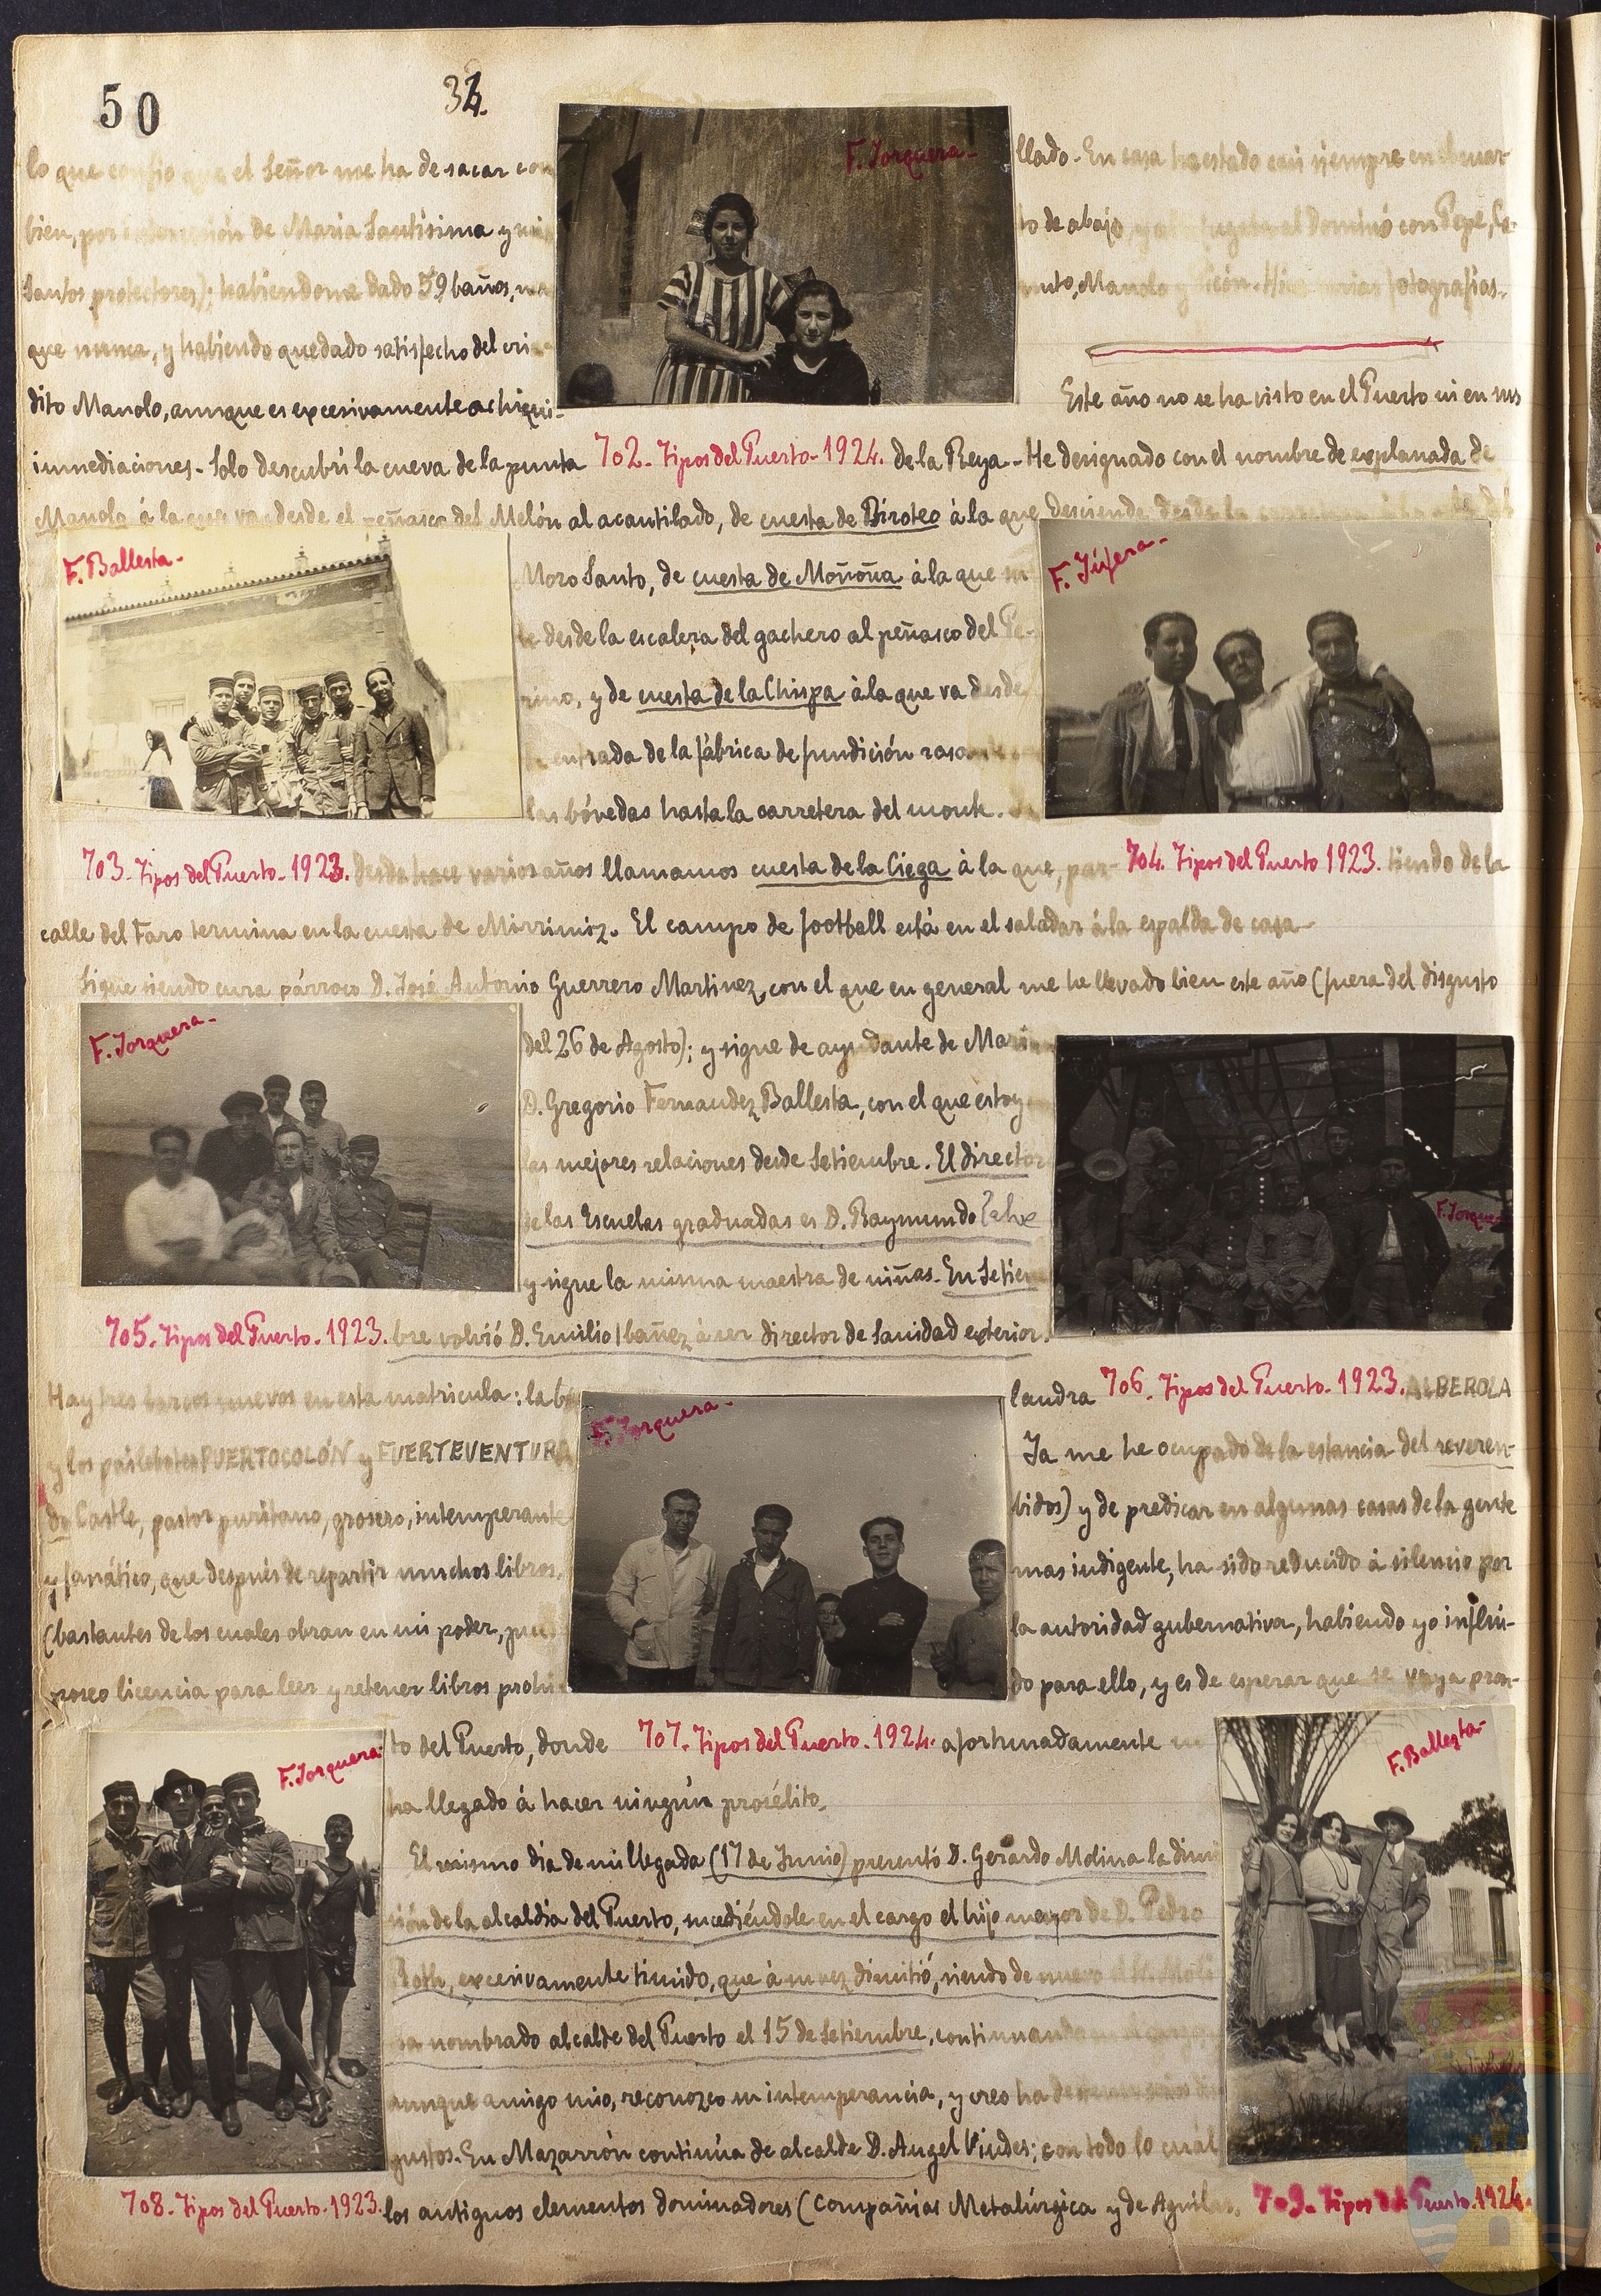 50
32
F. Jorquera-
lo que confio que el Señor me ha de sacar con llado. En casa he estado casi siempre en el cuar-
bien, por intercesión de Maria Santisima y mis to de abajo, y al Dominó con Pepe,
Santos protectores); habiendome dado 59 baños, mas Manolo y León. Hice varias fotografias.
que nunca, y habiendo quedado satisfecho del cria-
dito Manolo, aunque es excesivamente achiqui- Este año no se ha visto en el Puerto ni en sus
inmediaciones. Solo descubri la cueva de la punta 702. Tipos del Puerto. 1924. de la Reya. He designado con el nombre de explanada de
Manolo á la que va desde el peñasco del Melón al acantilado, de cuesta de Biroteo á la que desciende desde la
F. Ballesta-
Moro Santo, de cuesta de Moñoña á la que su
F. Júfera-
be desde la escalera del gachero al peñasco del Pe-
rino, y de cuesta de la Chispa á la que va desde
la entrada de la fábrica de fundición rasante
las bóvedas hasta la carretera del monte.
703. Tipos del Puerto. 1923. desde hace varios años llamamos cuesta de la Ciega á la que, par- 704. Tipos del Puerto 1923. tiendo de la
calle del Faro termina en la cuesta de Mirrimiz. El campo de football está en el saladar á la espalda de casa
Sigue siendo cura párroco D. José Antonio Guerrero Martinez, con el que en general me he llevado bien este año (fuera del disgusto
F. Jorquera-
del 26 de Agosto); y sigue de ayudante de Marina
D. Gregorio Fernandez Ballesta, con el que estoy
las mejores relaciones desde Setiembre. El director
F. Jorquera
de las Escuelas graduadas es D. Raymundo
y sigue la misma maestra de niñas. En Setiem
705. Tipos del Puerto. 1923. bre volvió D. Emilio Ibañez á ser director de Sanidad exterior.
Hay tres barcos nuevos en esta matricula: la ba landra 706. Tipos del Puerto. 1923. ALBEROLA
F. Jorquera-
y los pailebotes PUERTOCOLÓN y FUERTEVENTURA Ya me he ocupado de la estancia del reveren-
do Castle, pastor puritano, grosero, intemperante bidos) y de predicar en algunas casas de la gente
y fanático, que después de repartir muchos libros mas indigente, ha sido reducido á silencio por
(bastantes de los cuales obran en mi poder, pues la autoridad gubernativa, habiendo yo influi-
poseo licencia para leer y retener libros prohi do para ello, y es de esperar que se vaya pron-
F. Jorquera
to del Puerto, donde 707. Tipos del Puerto. 1924. afortunadamente
F. Ballesta-
ha llegado á hacer ningún prosélito.
El mismo dia de mi llegada (17 de Junio) presentó D. Gerardo Molina la dimi
sión de la alcaldia del Puerto, sucediéndole en el cargo el hijo mayor de D. Pedro
Roth, excesivamente timido, que á su vez dimitió, siendo de nuevo el Sr. Moli
na nombrado alcalde del Puerto el 15 de Setiembre, continuando
aunque amigo mio, reconozco su intemperancia, y creo ha de
gustos. En Mazarrón continúa de alcalde D. Angel Viudes; con todo lo cuál
708. Tipos del Puerto. 1923. los antiguos elementos dominadores (Compañias Metalúrgica y de Aguilas, 709. Tipos del Puerto. 1924.